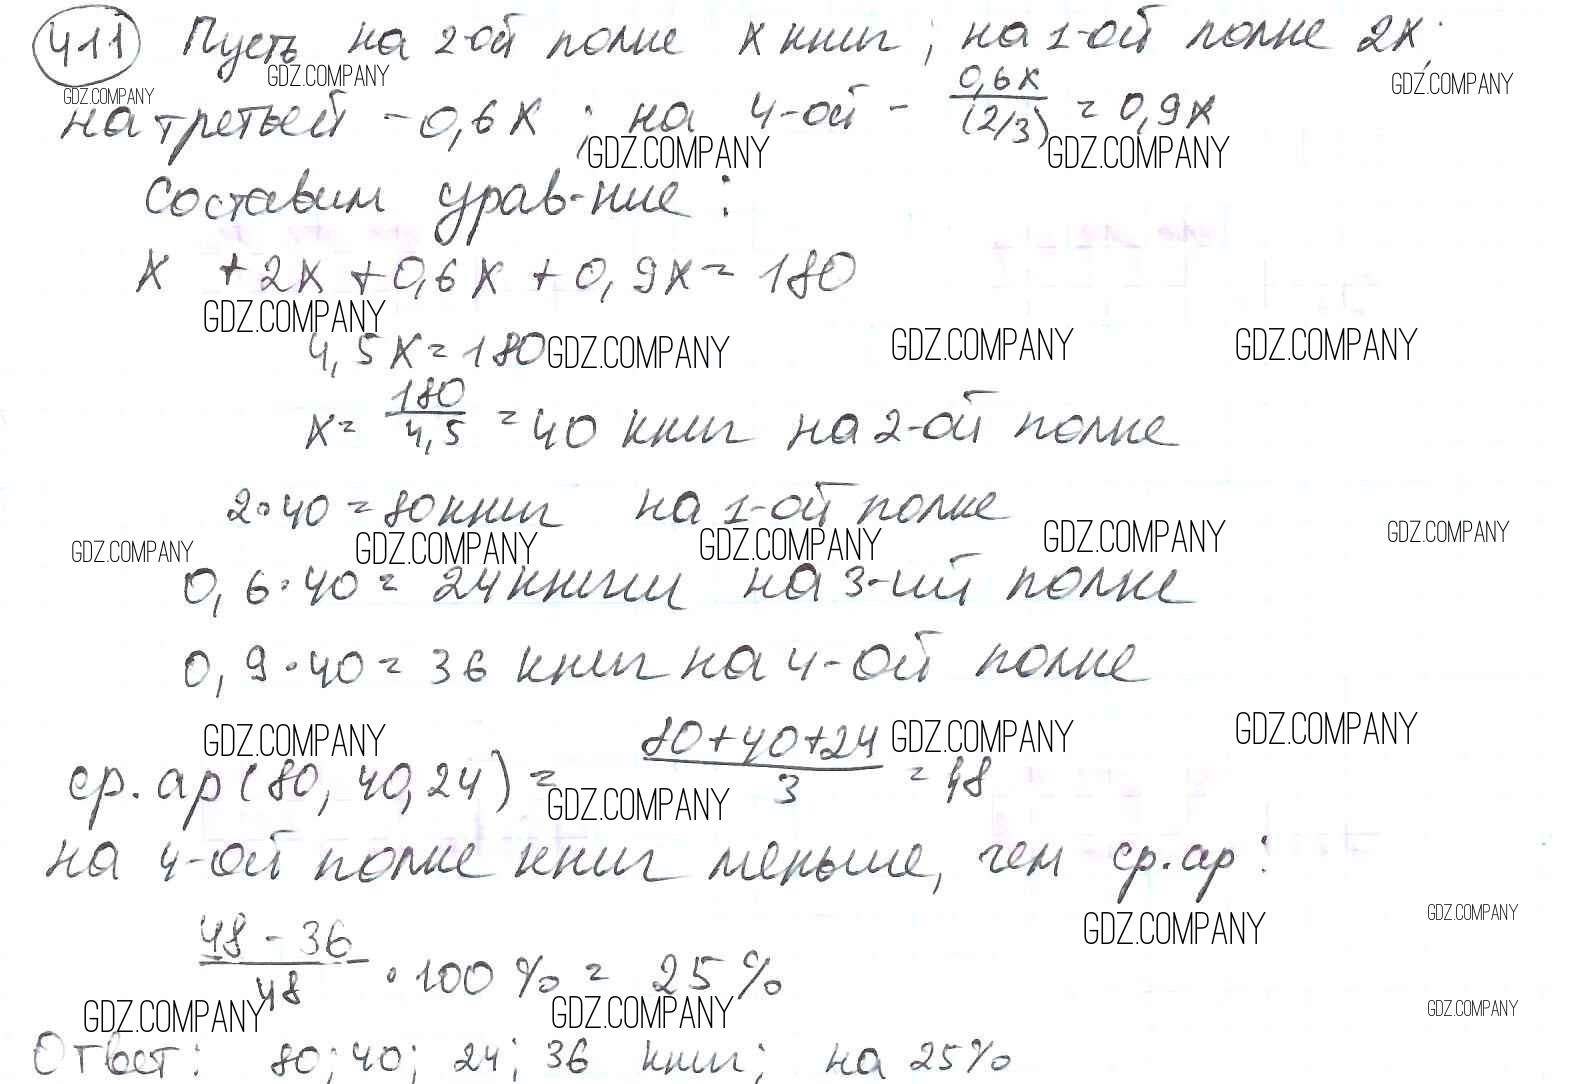 411 Пусть на 2-ой полке x книг; на 1-ой полке 2x;
GDZ.COMPANY GDZ.COMPANY GDZ.COMPANY
на третьей - 0,6x; на 4-ой - 0,6x/(2/3) = 0,9x
GDZ.COMPANY GDZ.COMPANY
Составим урав-ние:
x + 2x + 0,6x + 0,9x = 180
GDZ.COMPANY
4,5x = 180 GDZ.COMPANY GDZ.COMPANY GDZ.COMPANY
x = 180/4,5 = 40 книг на 2-ой полке
2·40 = 80 книг на 1-ой полке
GDZ.COMPANY GDZ.COMPANY GDZ.COMPANY GDZ.COMPANY GDZ.COMPANY
0,6·40 = 24 книги на 3-ий полке
0,9·40 = 36 книг на 4-ой полке
GDZ.COMPANY GDZ.COMPANY GDZ.COMPANY
ср.ар (80, 40, 24) = (80+40+24)/3 = 48
GDZ.COMPANY
на 4-ой полке книг меньше, чем ср.ар:
GDZ.COMPANY GDZ.COMPANY
(48 - 36)/48 · 100% = 25%
GDZ.COMPANY GDZ.COMPANY GDZ.COMPANY
Ответ: 80; 40; 24; 36 книг; на 25%